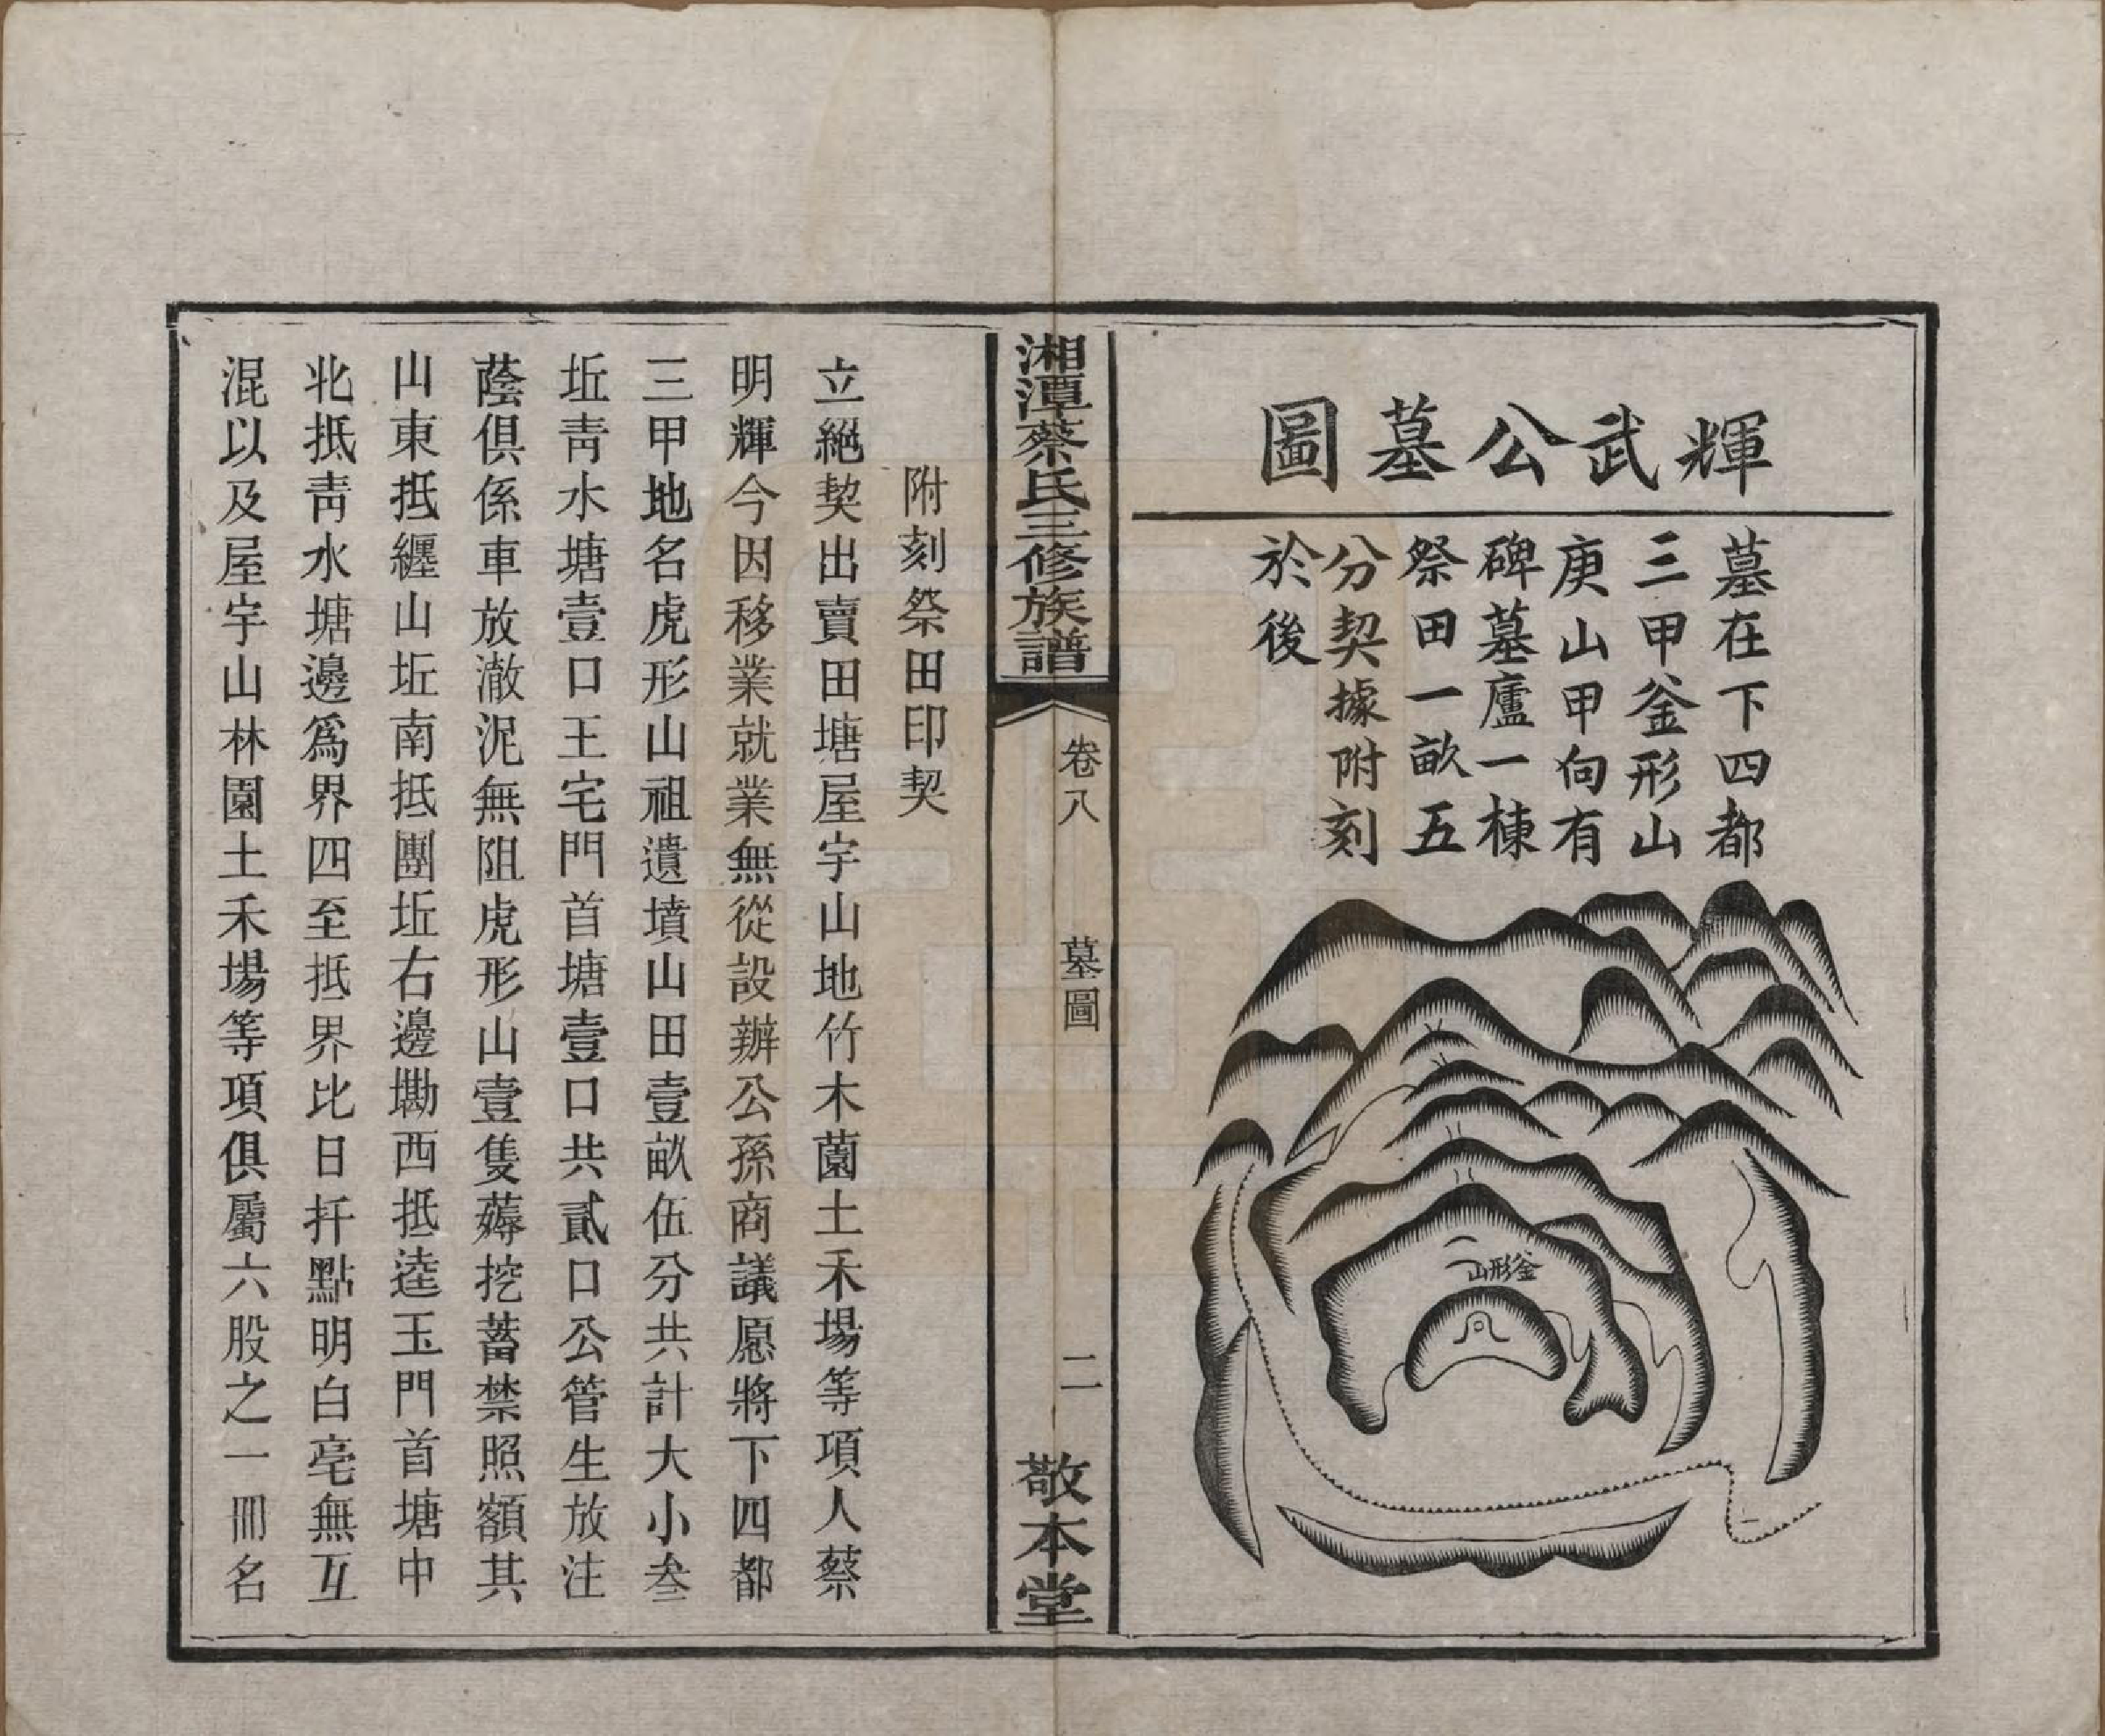 輝武公墓圖
墓在下四都
三甲釜形山
庚山甲向有
碑墓廬一棟
祭田一畝五
分契據附刻
於後
釜形山
湘潭蔡氏三修族譜
卷八
墓圖
二
敬本堂
附刻祭田印契
立絕契出賣田塘屋宇山地竹木薗土禾場等項人蔡
明輝今因移業就業無從設辦公孫商議愿將下四都
三甲地名虎形山祖遺墳山田壹畝伍分共計大小叁
坵靑水塘壹口王宅門首塘壹口共貳口公管生放注
蔭俱係車放澈泥無阻虎形山壹隻薅挖蓄禁照額其
山東抵纒山坵南抵團坵右邊墈西抵逵玉門首塘中
北抵靑水塘邊爲界四至抵界比日扦點明白亳無互
混以及屋宇山林園土禾場等項俱屬六股之一冊名